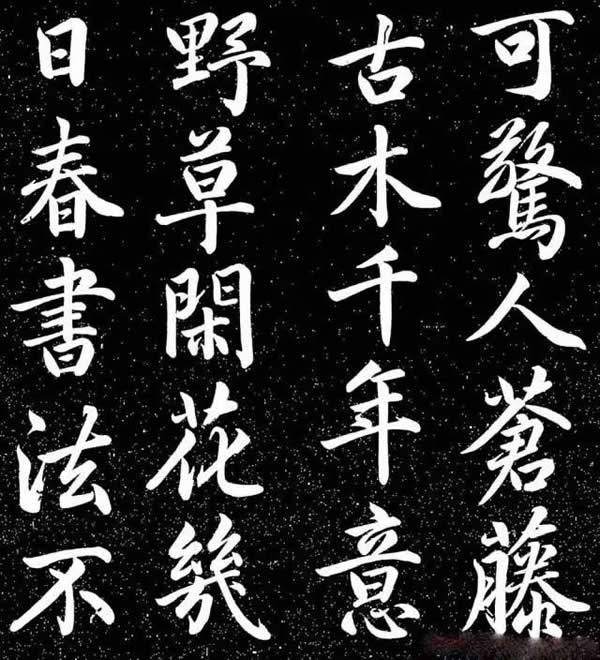 可驚人蒼藤
古木千年意
野草閑花幾
日春書法不